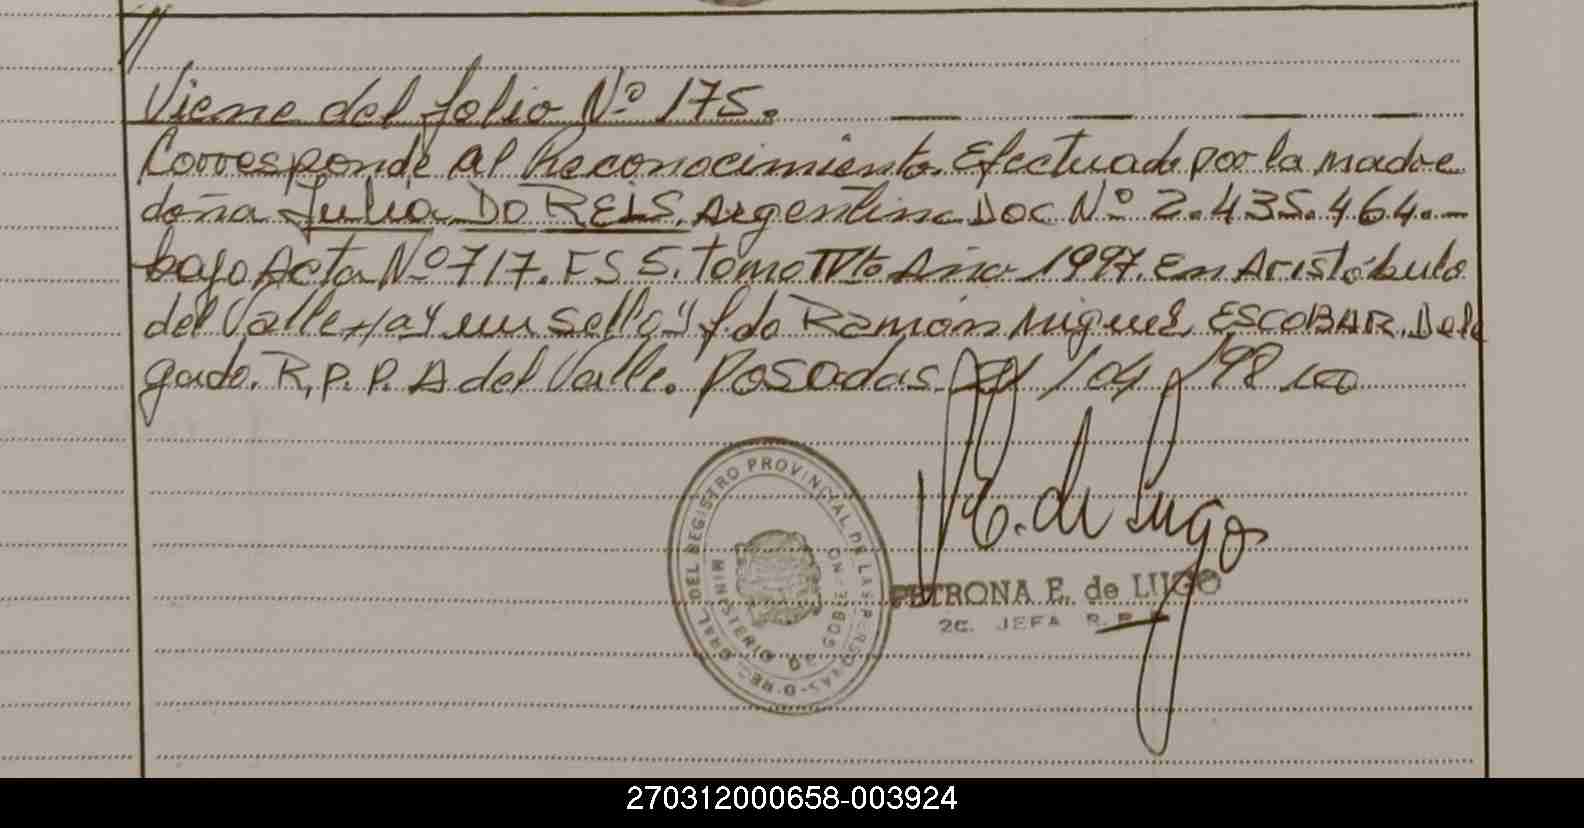 Viene del folio Nº 175.
Corresponde al Reconocimiento Efectuado por la madre
doña Julia DO REIS, Argentina Doc Nº 2.435.464.-
bajo Acta Nº 717. FS 5. tomo IVto Año 1997. En Aristóbulo
del Valle Hay un sello y f.do Ramón Miguel ESCOBAR Dele
gado. R.P.P. A del Valle. Posadas /04/98
P.E. de Lugo
PETRONA E. de LUGO
2a. JEFA R.P.P.
D.REC. GRAL. DEL REGISTRO PROVINCIAL DE LAS PERSONAS
MINISTERIO DE GOBIERNO
270312000658-003924